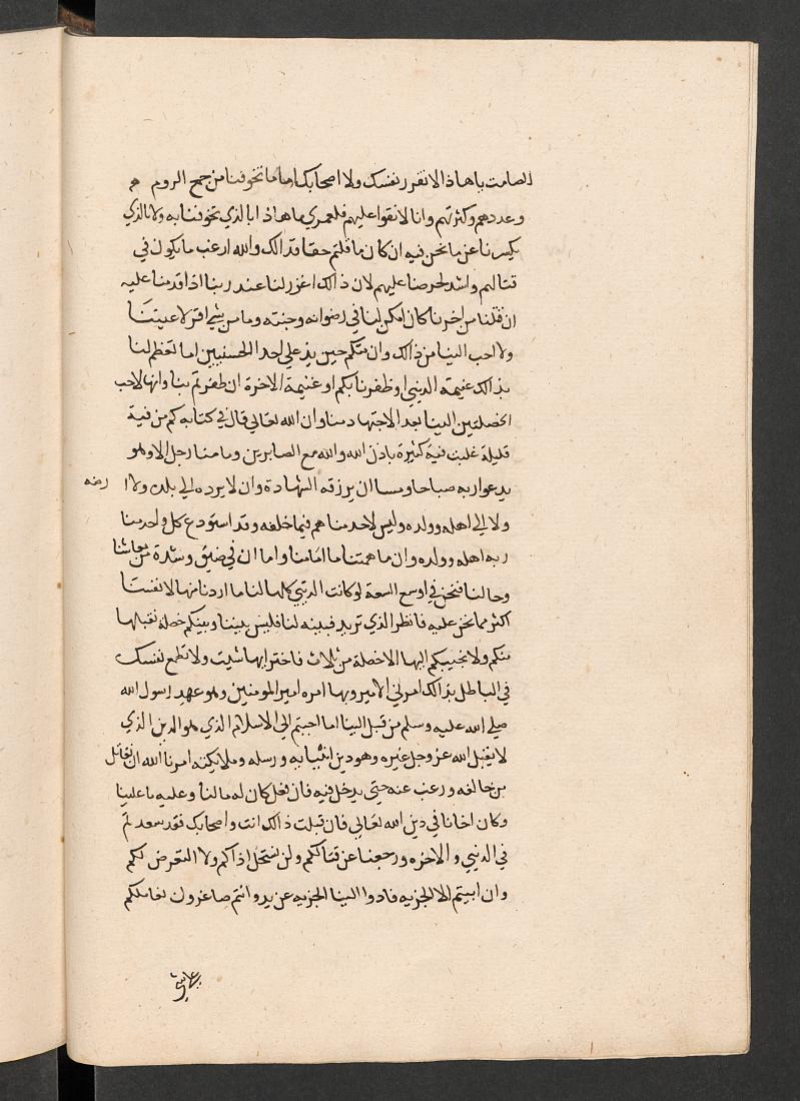 الصامت ياهاذا لا تغرر نفسك ولا اصحابك اما ما تخوفنا من جمع الروم هم
وعددهم وكثرتهم وانا لا نقوا عليهم فلعمري ما هاذا بالذي تخوفنا به ولا بالذي
يكسرنا عن ما نحن فيه ان كان ما قلتم حقا فذالك والله ارغب ما يكون في
قتالهم واشد لحرصنا عليهم لان ذالك اعذر لنا عند ربنا اذا قدمنا عليه
ان قتلنا من اخرنا كان امكن لنا في رضوانه وجنته وما من شي اقر لاعيننا
ولا احب الينا من ذالك وان منكم حين يذ علي احد الحسنيين اما تعظم لنا
بذالك غنيمة الدنيي ان ظفرنا بكم او غنيمة الاخرة ان ظفرتم بنا وانها لاحب
الخصلتين الينا بعد الاجتهاد منا وان الله تعالي قال في كتابه كم من فية
قليلة غلبت فية كثيرة باذن الله والله مع الصابرين وما منا رجل الا وهو
يدعوا ربه صباحا ومسا ان يرزقه الشهادة وان لا يرده الي بلده ولا ارضه
ولا الي اهله وولده وليس لاحد منا هم فيما خلفه وقد استودع كل واحد منا
ربه اهله وولده وان ما همتنا ما امامنا واما ان في ضيق وشدة من معاشنا
وحالنا فنحن في اوسع السعة لو كانت الدنيي كلها لنا ما اردنا منها لانفسنا
اكثر مما نحن عليه فانظر الذي تريد فبينه لنا فليس بيننا وبينكم خصلة نقبلها
منكم ولا نجيبكم اليها الا خصلة من ثلاث فاختر ايها شيت ولا تطمع نفسك
في الباطل بذالك امرني الامير وبها امره امير المومنين وهو عهد رسول الله
صلي الله عليه وسلم من قبل الينا اما اجبتم الي الاسلام الذي هو الدين الذي
لا يقبل الله عز وجل غيره وهو دين انبيايه ورسله وملايكته امرنا الله ان نقاتل
من خالفه ورغب عنه حتي يدخل فيه فان فعل كان له ما لنا وعليه ما علينا
وكان اخانا في دين الله تعالي فان قبلت ذالك انت واصحابك فقد سعدتم
في الدنيي والاخره ورجعنا عن قتالكم ولن نستحل اذاكم ولا التعرض لكم
وان ابيتم الا الجزيه فادوا الينا الجزيه عن يد وانتم صاغرون نعاملكم
علي شي